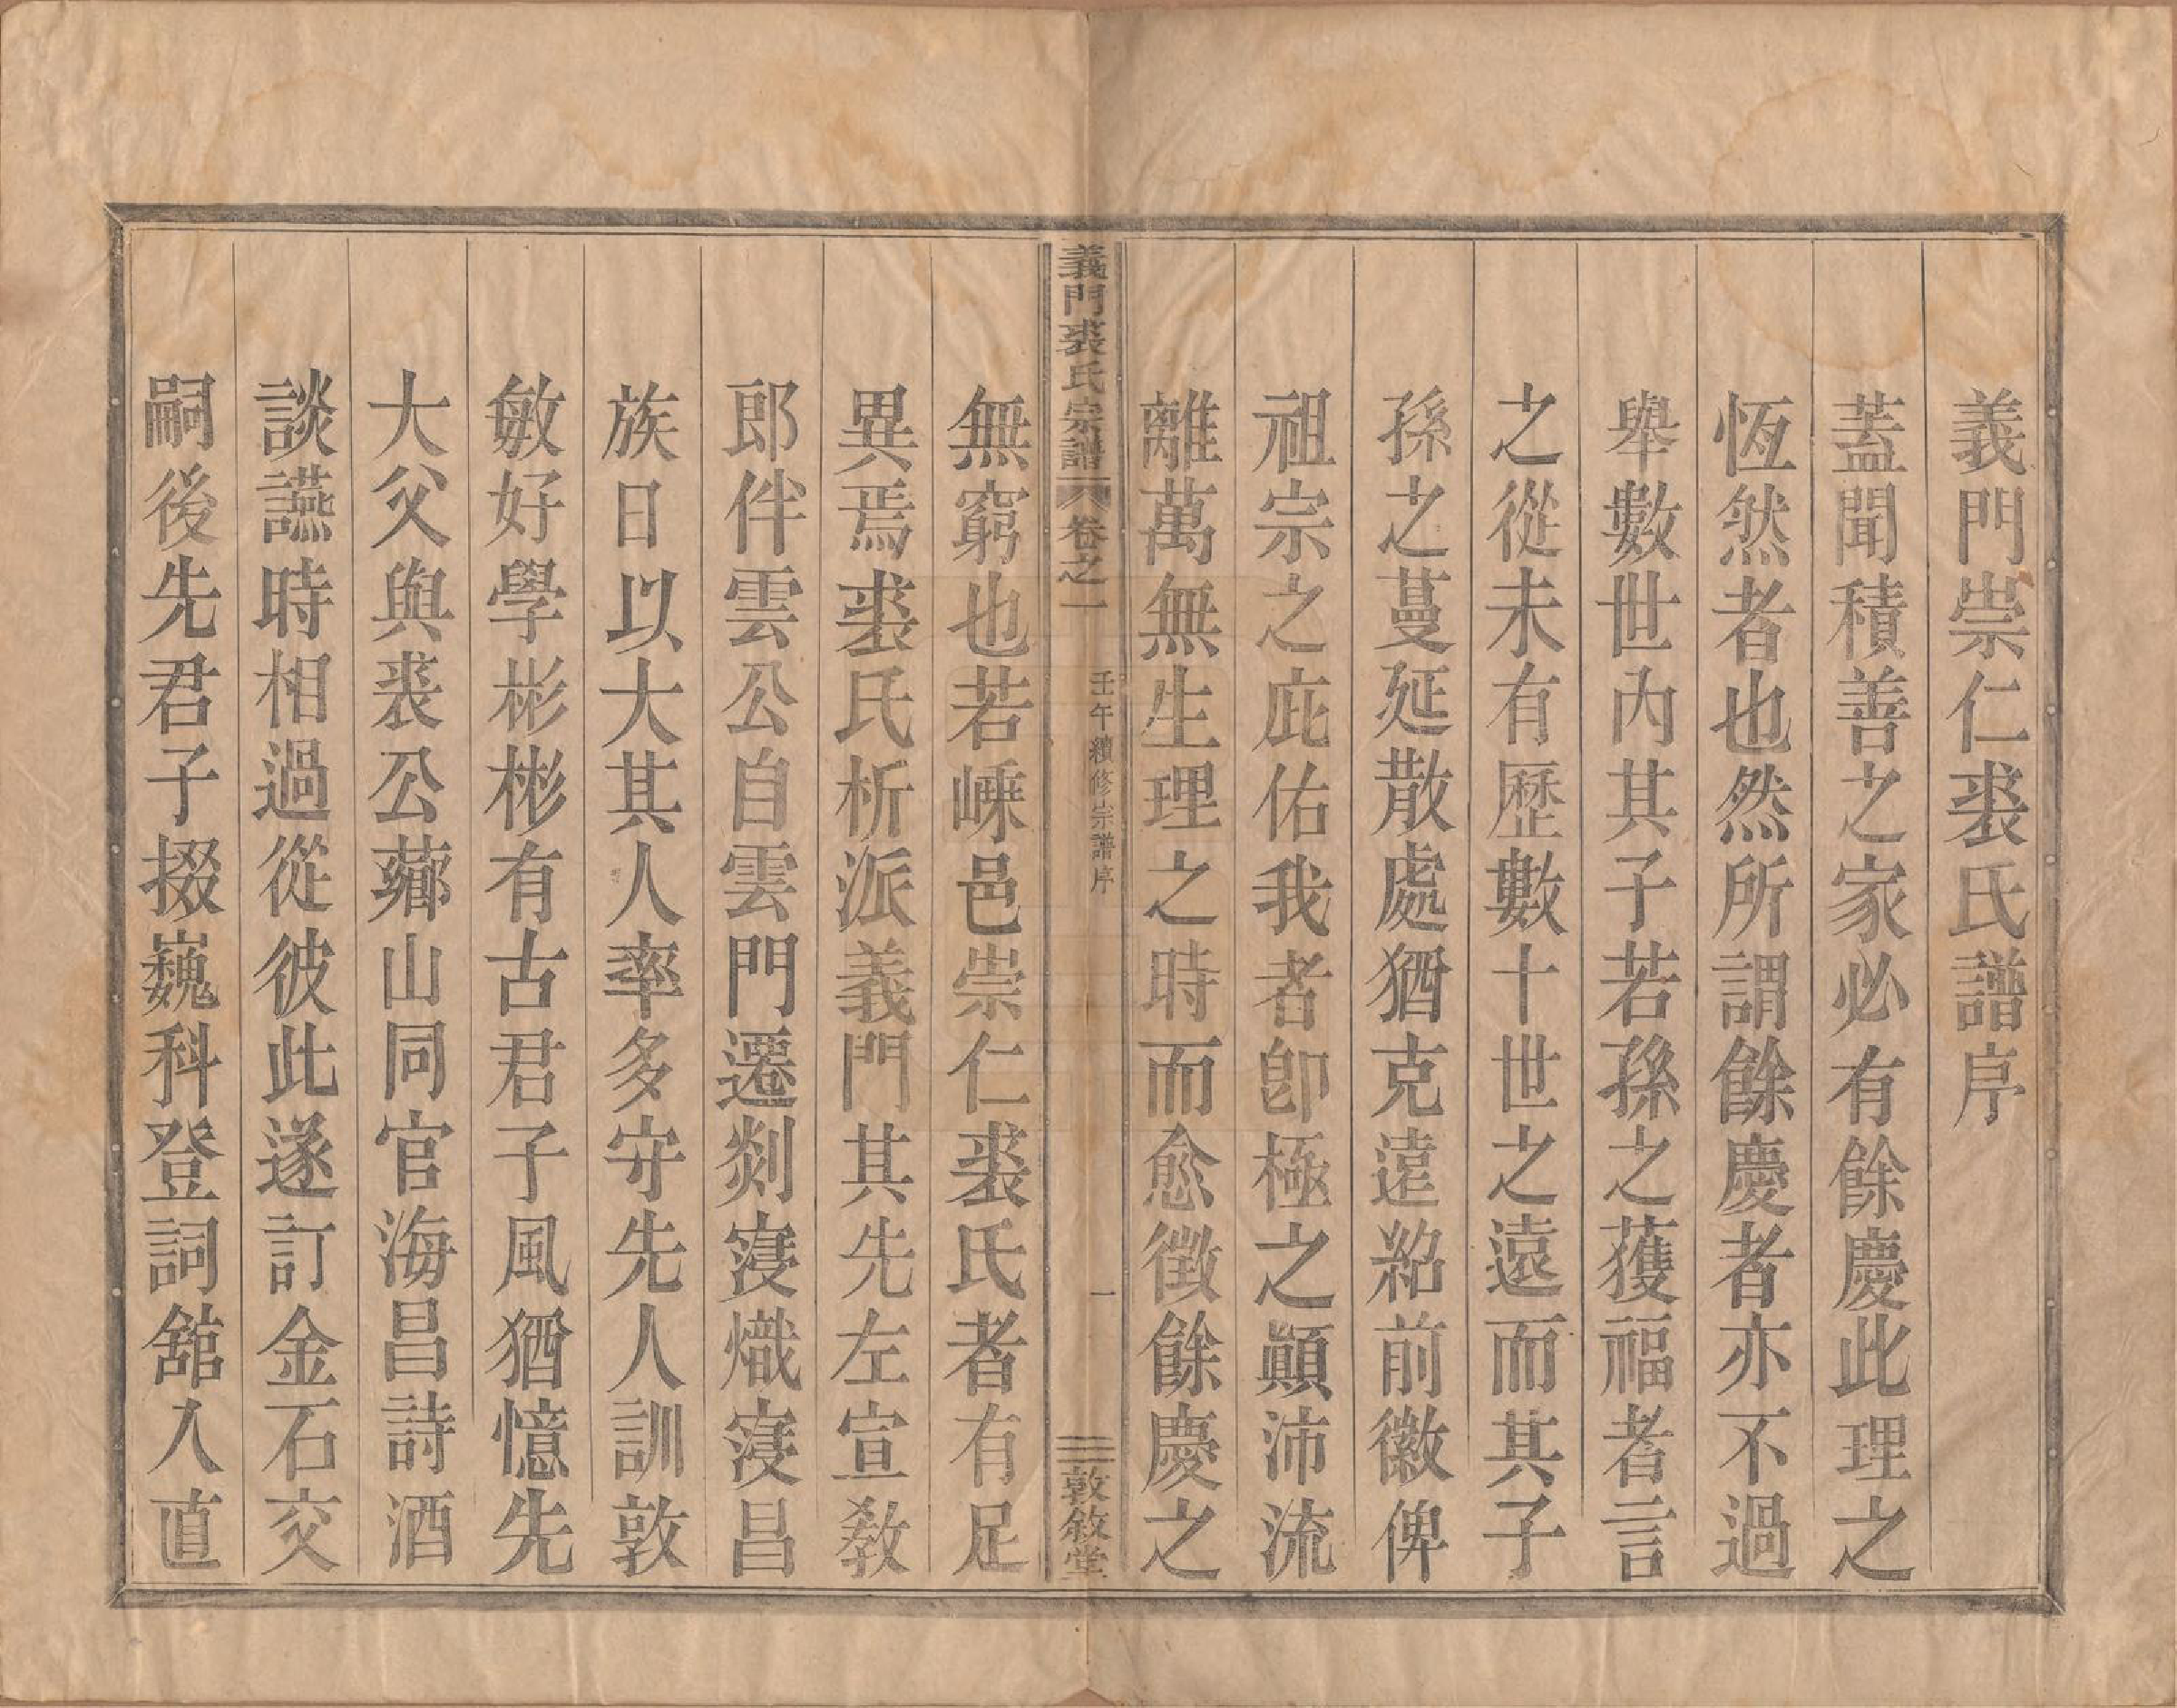 義門崇仁裘氏譜序
蓋聞積善之家必有餘慶此理之
恆然者也然所謂餘慶者亦不過
舉數世內其子若孫之獲福者言
之從未有歷數十世之遠而其子
孫之蔓延散處猶克遠紹前徽俾
祖宗之庇佑我者卽極之顛沛流
離萬無生理之時而愈徵餘慶之
義門裘氏宗譜 卷之一 壬午續修宗譜序 一 敦敘堂
無窮也若嵊邑崇仁裘氏者有足
異焉裘氏析派義門其先左宣教
郎伴雲公自雲門遷剡寖熾寖昌
族日以大其人率多守先人訓敦
敏好學彬彬有古君子風猶憶先
大父與裘公薌山同官海昌詩酒
談讌時相過從彼此遂訂金石交
嗣後先君子掇巍科登詞舘入直